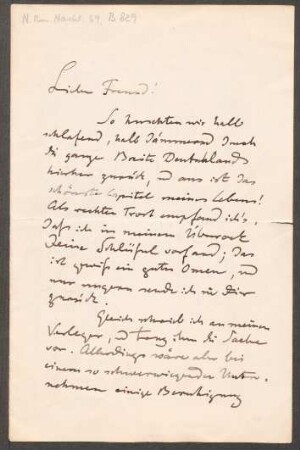 N. Mus. Nachl. 59, B 829
Lieber Freund!
So huschten wir halb
schlafend, halb dämmernd durch
die ganze Breite Deutschlands
hierher zurück, und aus ist das
schönste Capitel meines Lebens!
Als rechten Trost empfand ich's,
daß ich in meinem Überrock
Deine Schlüssel vorfand; das
ist gewiß ein gutes Omen, und
nur ungern sende ich sie Dir
zurück.
Gleich schrieb ich an meinen
Verleger, und trug ihm die Sache
vor. Allerdings wäre aber bei
einem so schwerwiegenden Unter-
nehmen einige Beruhigung